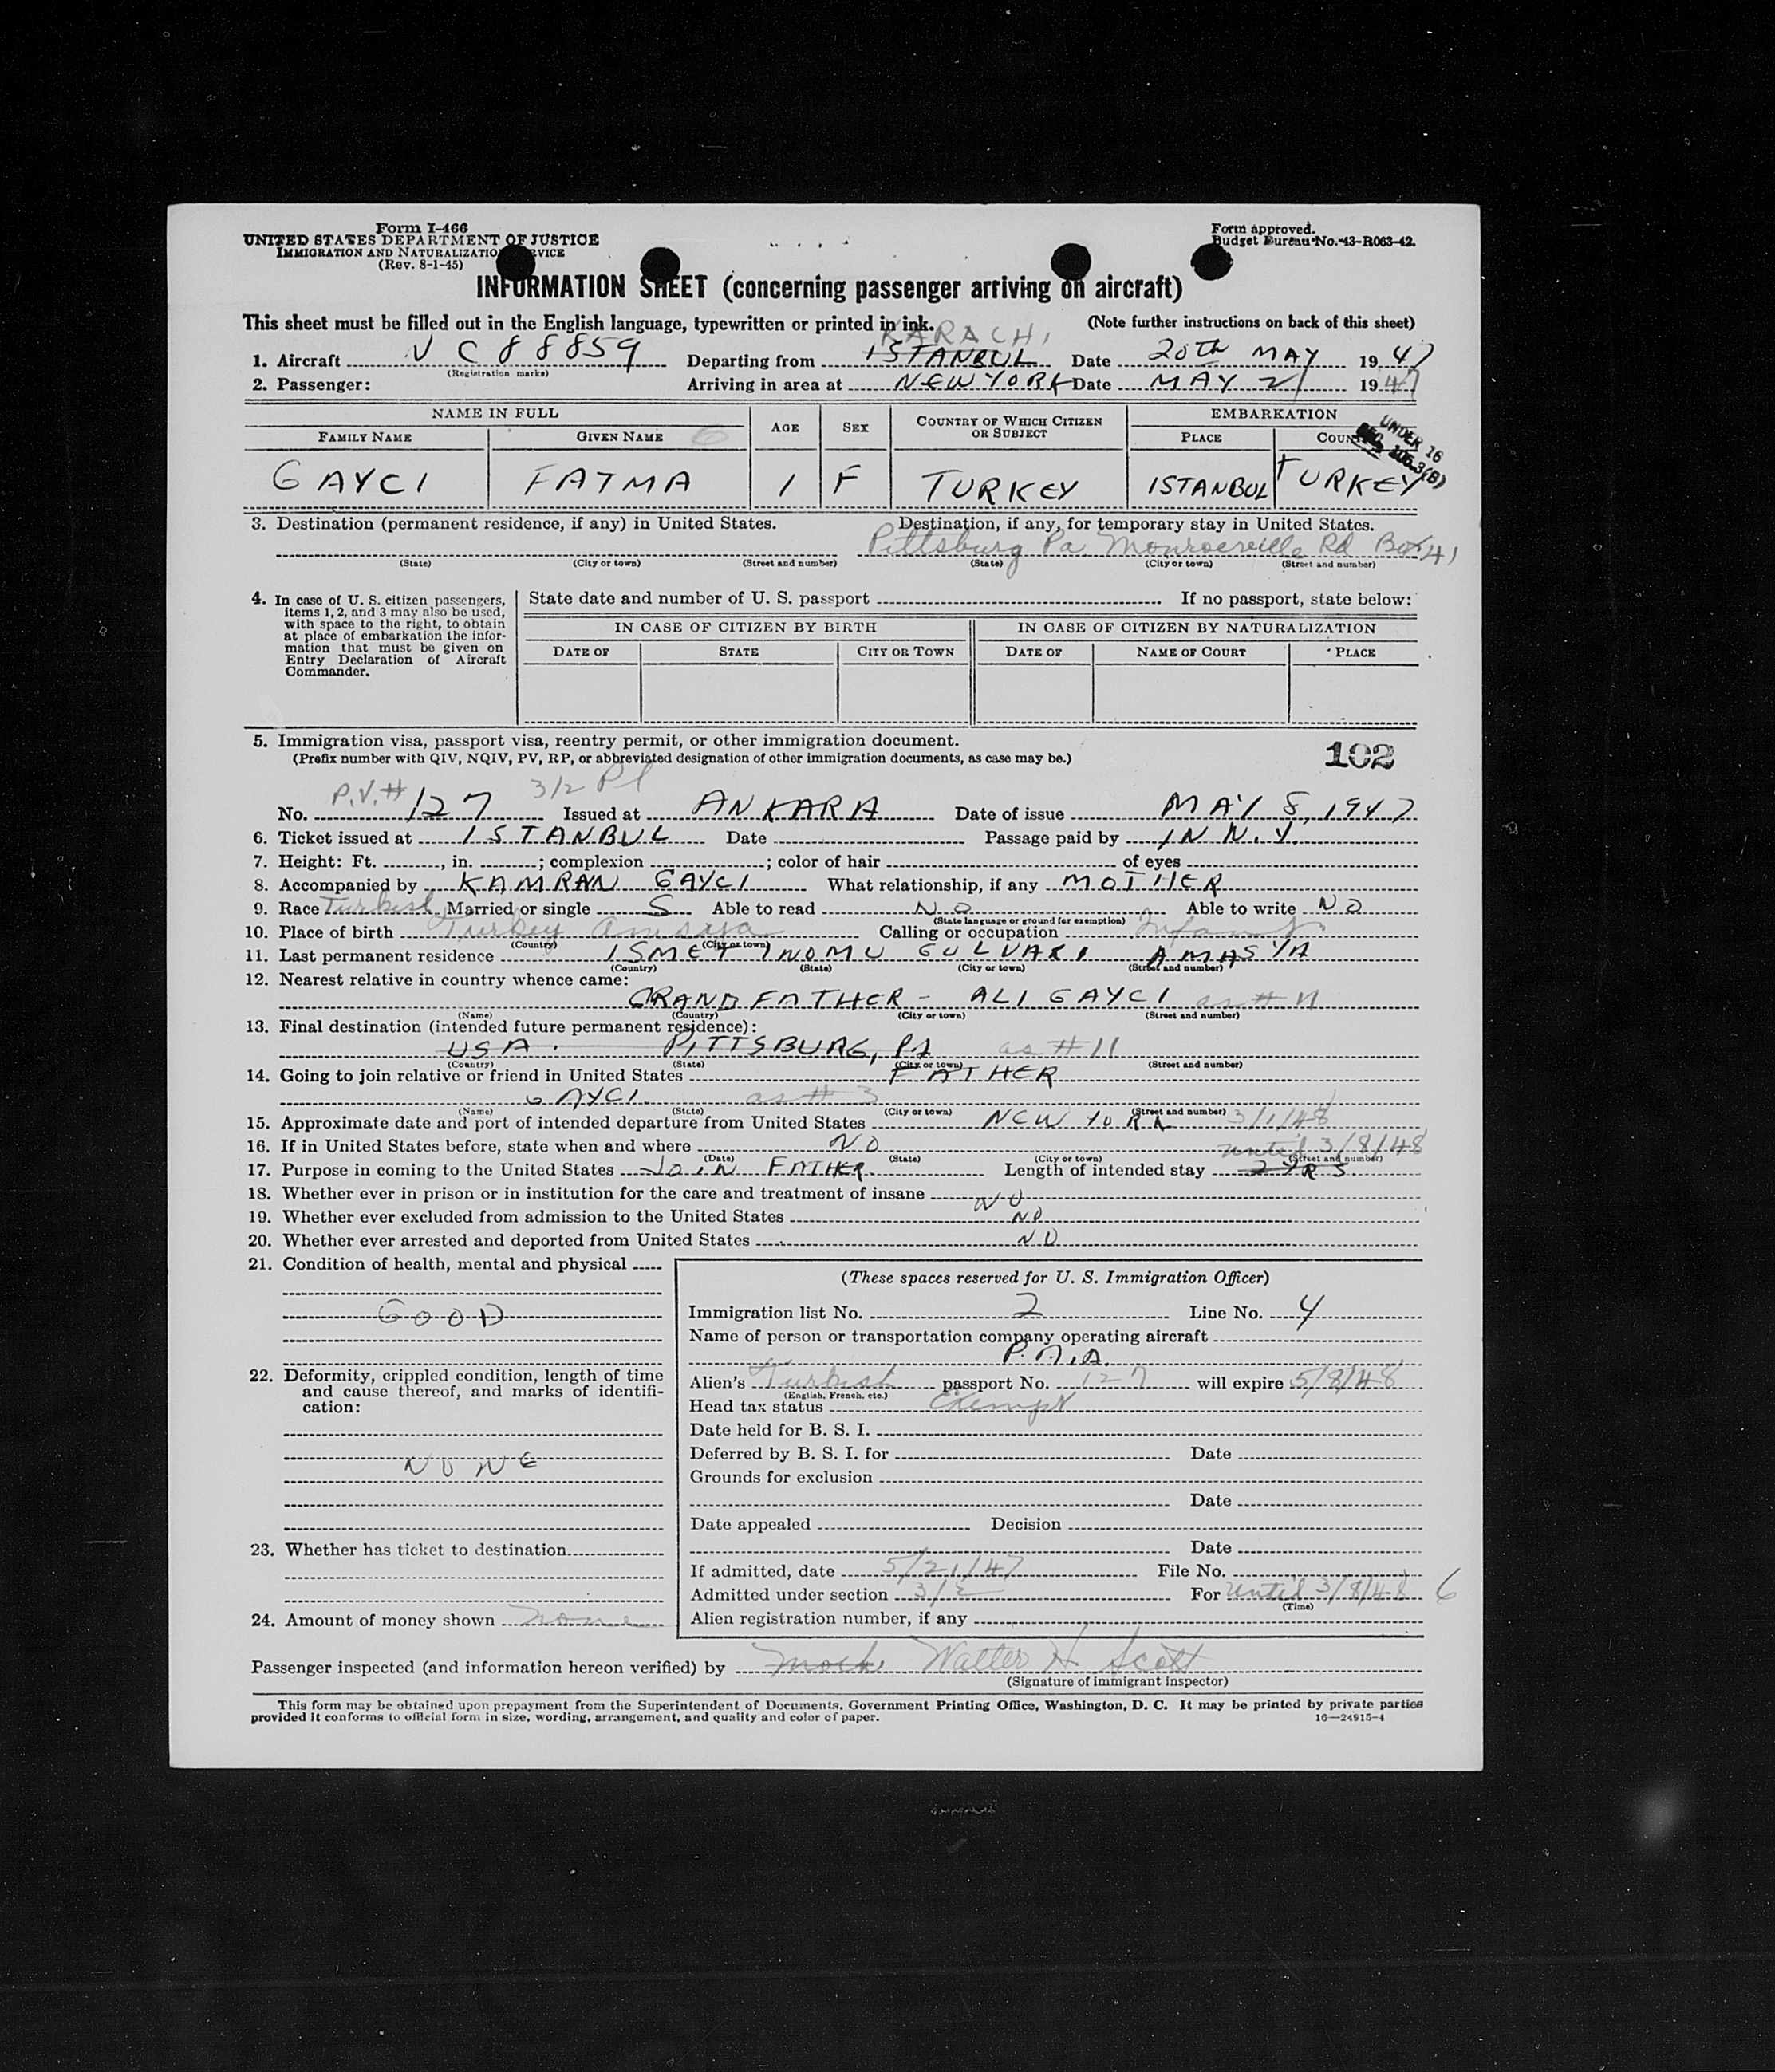 Form I-466
UNITED STATES DEPARTMENT OF JUSTICE
IMMIGRATION AND NATURALIZATION SERVICE
(Rev. 8-1-45)
Form approved.
Budget Bureau No. 43-R063-42.
INFORMATION SHEET (concerning passenger arriving on aircraft)
This sheet must be filled out in the English language, typewritten or printed in ink. (Note further instructions on back of this sheet)
KARACHI
1. Aircraft N C 88859 Departing from ISTANBUL Date 20TH MAY 1947
(Registration marks)
2. Passenger: Arriving in area at NEW YORK Date MAY 21 1947
NAME IN FULL AGE SEX COUNTRY OF WHICH CITIZEN OR SUBJECT EMBARKATION
FAMILY NAME GIVEN NAME PLACE COUNTRY
UNDER 16
SEC. 106.3(B)
GAYCI FATMA 1 F TURKEY ISTANBUL TURKEY
3. Destination (permanent residence, if any) in United States. Destination, if any, for temporary stay in United States.
Pittsburg Pa Monroeville Rd Box 41
(State) (City or town) (Street and number) (State) (City or town) (Street and number)
4. In case of U. S. citizen passengers, items 1, 2, and 3 may also be used, with space to the right, to obtain at place of embarkation the information that must be given on Entry Declaration of Aircraft Commander.
State date and number of U. S. passport If no passport, state below:
IN CASE OF CITIZEN BY BIRTH IN CASE OF CITIZEN BY NATURALIZATION
DATE OF STATE CITY OR TOWN DATE OF NAME OF COURT PLACE
5. Immigration visa, passport visa, reentry permit, or other immigration document. 102
(Prefix number with QIV, NQIV, PV, RP, or abbreviated designation of other immigration documents, as case may be.)
No. P.V.# 127 3/2 Pl Issued at ANKARA Date of issue MAY 8, 1947
6. Ticket issued at ISTANBUL Date Passage paid by IN N.Y.
7. Height: Ft. , in. ; complexion ; color of hair of eyes
8. Accompanied by KAMRAN GAYCI What relationship, if any MOTHER
9. Race Turkish Married or single S Able to read NO Able to write NO
(State language or ground for exemption)
10. Place of birth Turkey Amasya Calling or occupation Infant
(Country) (City or town)
11. Last permanent residence ISMET INOMU GULVARI AMASYA
(Country) (State) (City or town) (Street and number)
12. Nearest relative in country whence came:
GRANDFATHER - ALI GAYCI as # 11
(Name) (Country) (City or town) (Street and number)
13. Final destination (intended future permanent residence):
USA. PITTSBURG, PA as # 11
(Country) (State) (City or town) (Street and number)
14. Going to join relative or friend in United States FATHER
GAYCI. as # 3
(Name) (State) (City or town) (Street and number)
15. Approximate date and port of intended departure from United States NEW YORK 3/1/48
16. If in United States before, state when and where NO
(Date) (State) (City or town) (Street and number)
until 3/8/48
17. Purpose in coming to the United States JOIN FATHER Length of intended stay 2 YRS.
18. Whether ever in prison or in institution for the care and treatment of insane NO
19. Whether ever excluded from admission to the United States NO
20. Whether ever arrested and deported from United States NO
21. Condition of health, mental and physical
GOOD
22. Deformity, crippled condition, length of time and cause thereof, and marks of identification:
NONE
23. Whether has ticket to destination
24. Amount of money shown none
(These spaces reserved for U. S. Immigration Officer)
Immigration list No. 2 Line No. 4
Name of person or transportation company operating aircraft
P.A.A.
Alien's Turkish passport No. 127 will expire 5/8/48
(English, French, etc.)
Head tax status Exempt
Date held for B. S. I.
Deferred by B. S. I. for Date
Grounds for exclusion
Date
Date appealed Decision
Date
If admitted, date 5/21/47 File No.
Admitted under section 3/2 For until 3/8/48 6
(Time)
Alien registration number, if any
Passenger inspected (and information hereon verified) by Walter H Scott
(Signature of immigrant inspector)
This form may be obtained upon prepayment from the Superintendent of Documents, Government Printing Office, Washington, D. C. It may be printed by private parties
provided it conforms to official form in size, wording, arrangement, and quality and color of paper. 16—24915-4